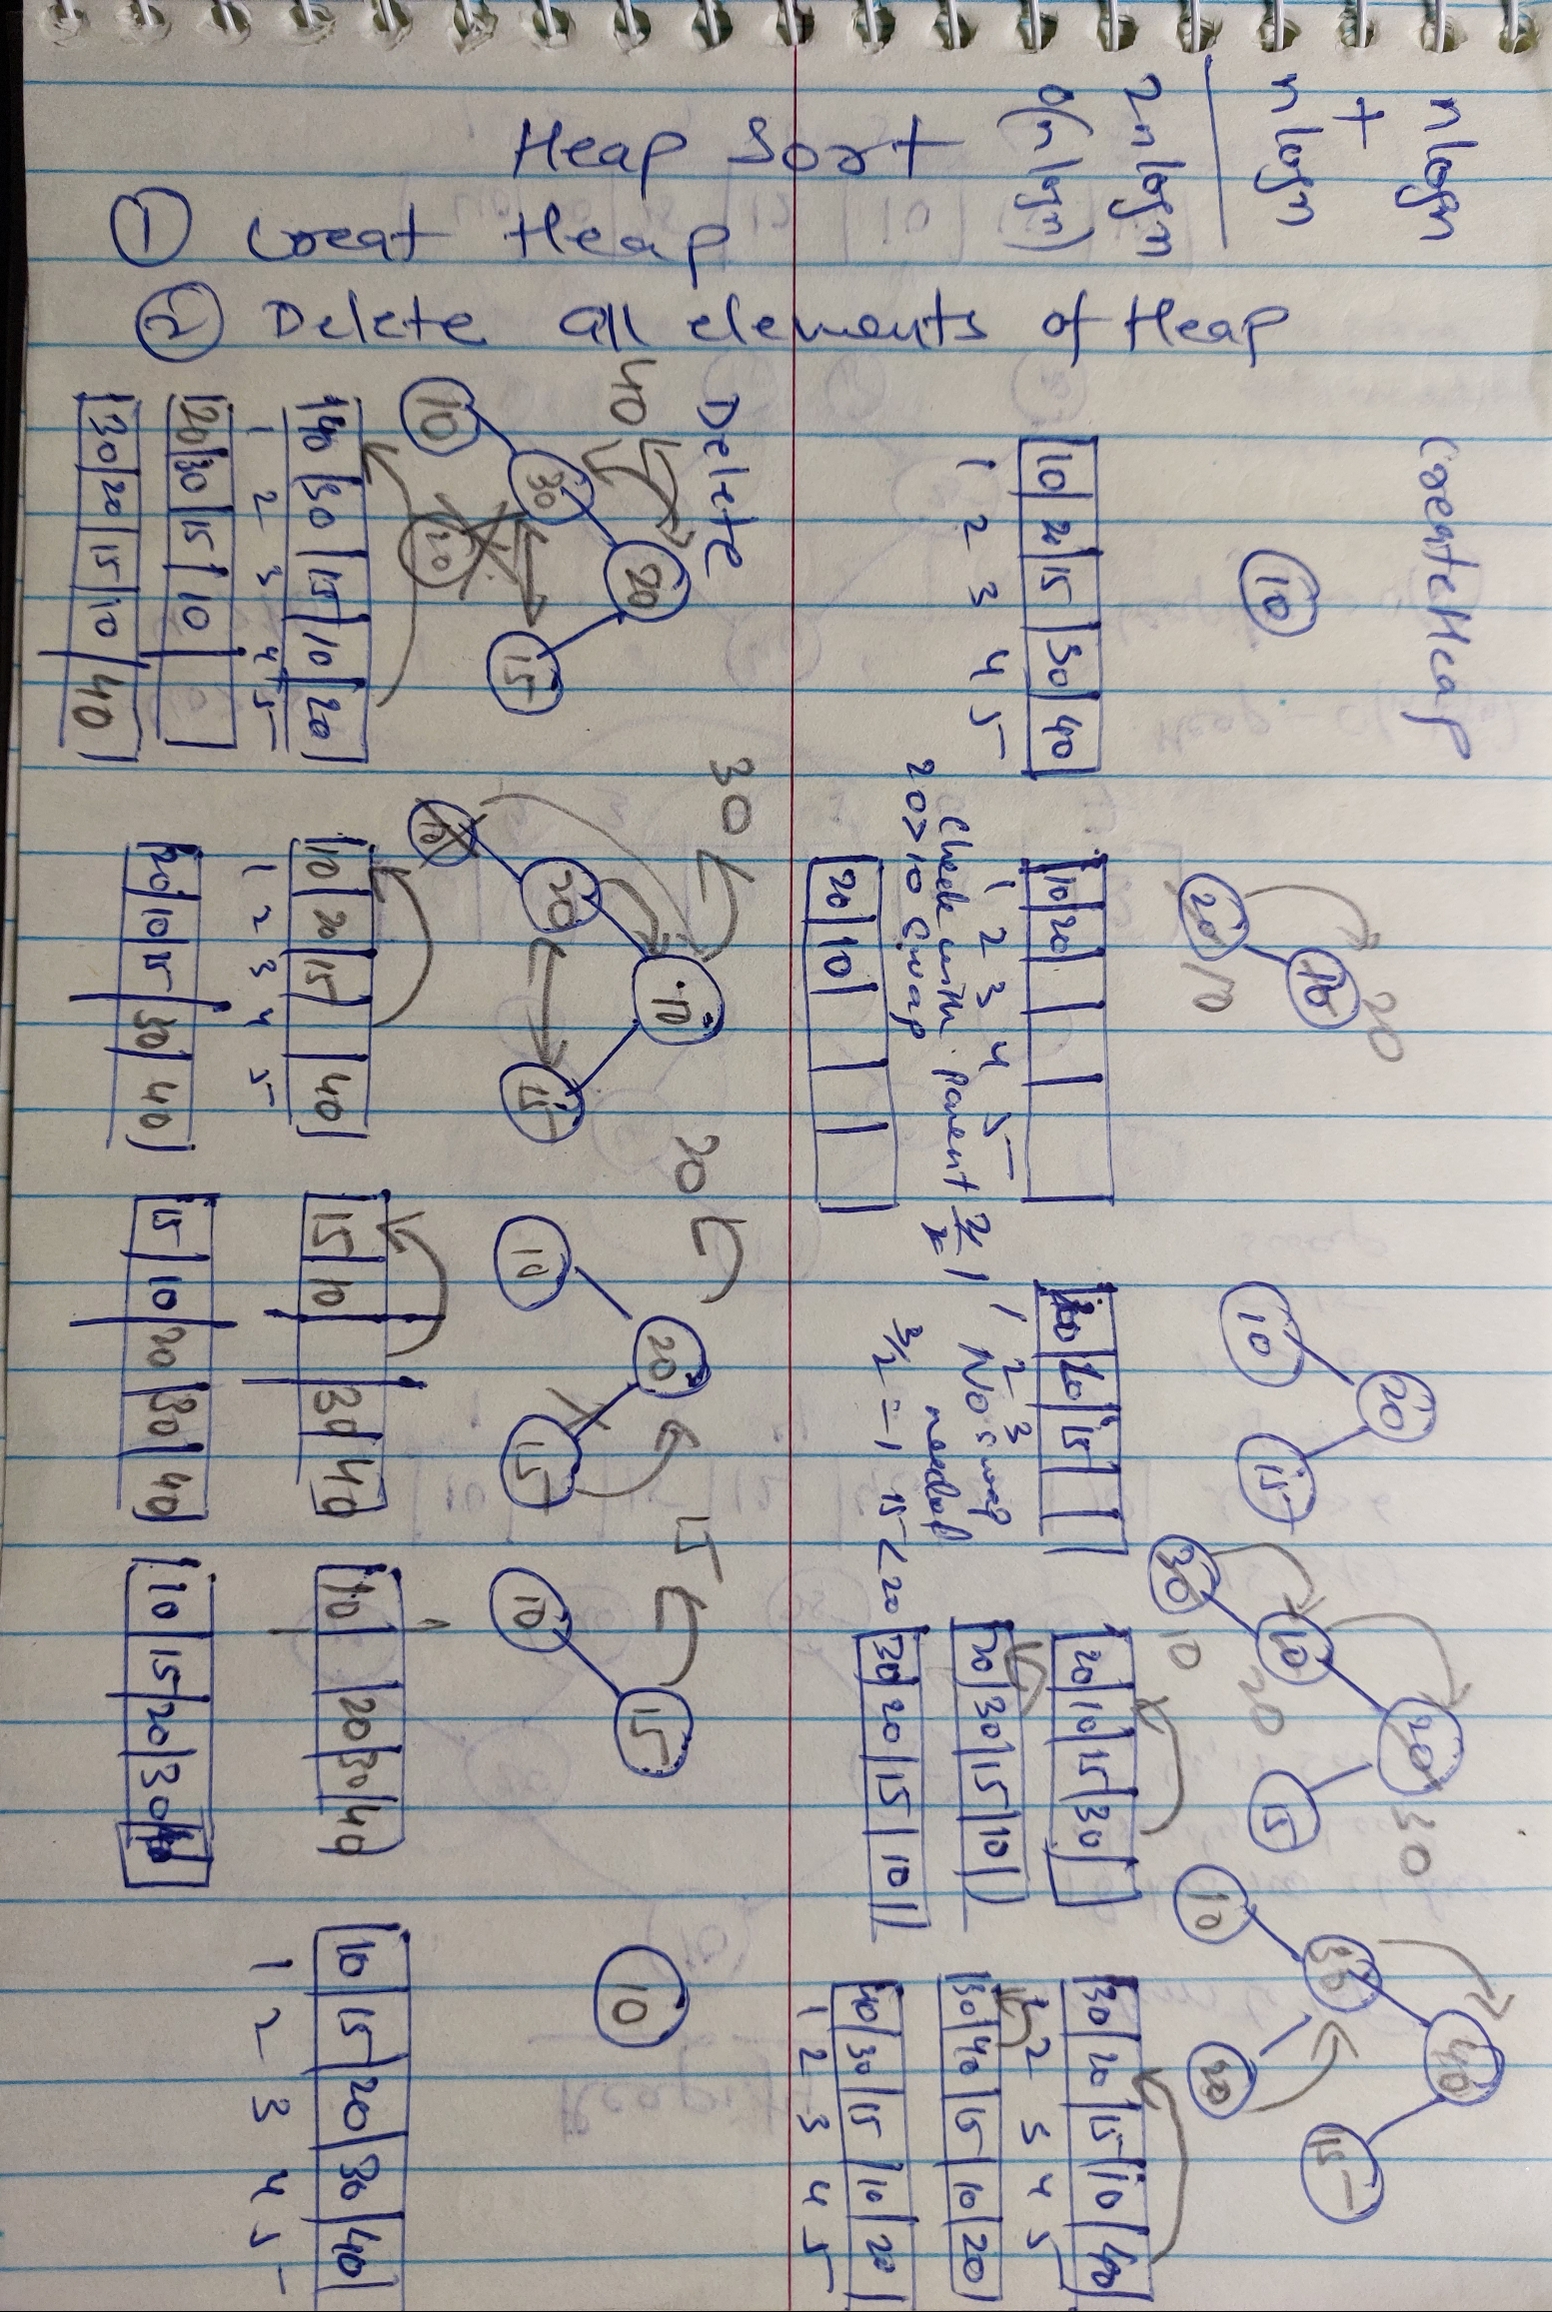 nlogn
+
nlogn
2nlogn
O(nlogn)
Heap Sort
① Creat Heap
② Delete all elements of Heap
CreateHeap
10
20
10
20 10
20
10 15
20 30
10 20 15
30 10
40
30 15
10 20
10 20 15 30 40
1 2 3 4 5
10 20
1 2 3 4 5
Check with parent 2/2 1
20>10 Swap
20 10
20 15
1 2 3
No swap
needed
3/2 = 1 15 < 20
20 10 15 30
20 30 15 10
30 20 15 10
30 20 15 10 40
1 2 3 4 5
30 40 15 10 20
40 30 15 10 20
1 2 3 4 5
Delete
40 20
30 15
10 20
40 30 15 10 20
1 2 3 4 5
20 30 15 10
30 20 15 10 40
30 10
20 15
10
10 20 15 40
1 2 3 4 5
20 10 15 30 40
20 20
10 15
15 10 30 40
15 10 20 30 40
15 15
10
10 20 30 40
10 15 20 30 40
10
10 15 20 30 40
1 2 3 4 5